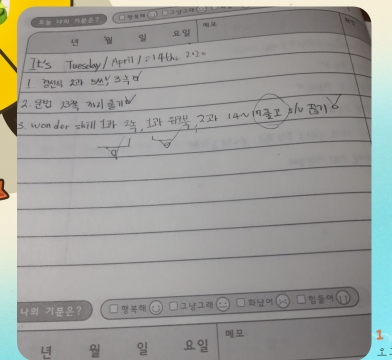 오늘 나의 기분은? 행복해 그냥그래
년 월 일 요일 메모
It's Tuesday / April / 14th 2020
1. 2과 3쪽
2. 문법 13쪽 까지 풀기
3. wonder skill 1과 2쪽, 1과 워크북, 2과 14~17 풀고 s/v 끊기
나의 기분은? 행복해 그냥그래 화났어 힘들어
년 월 일 요일 메모
1